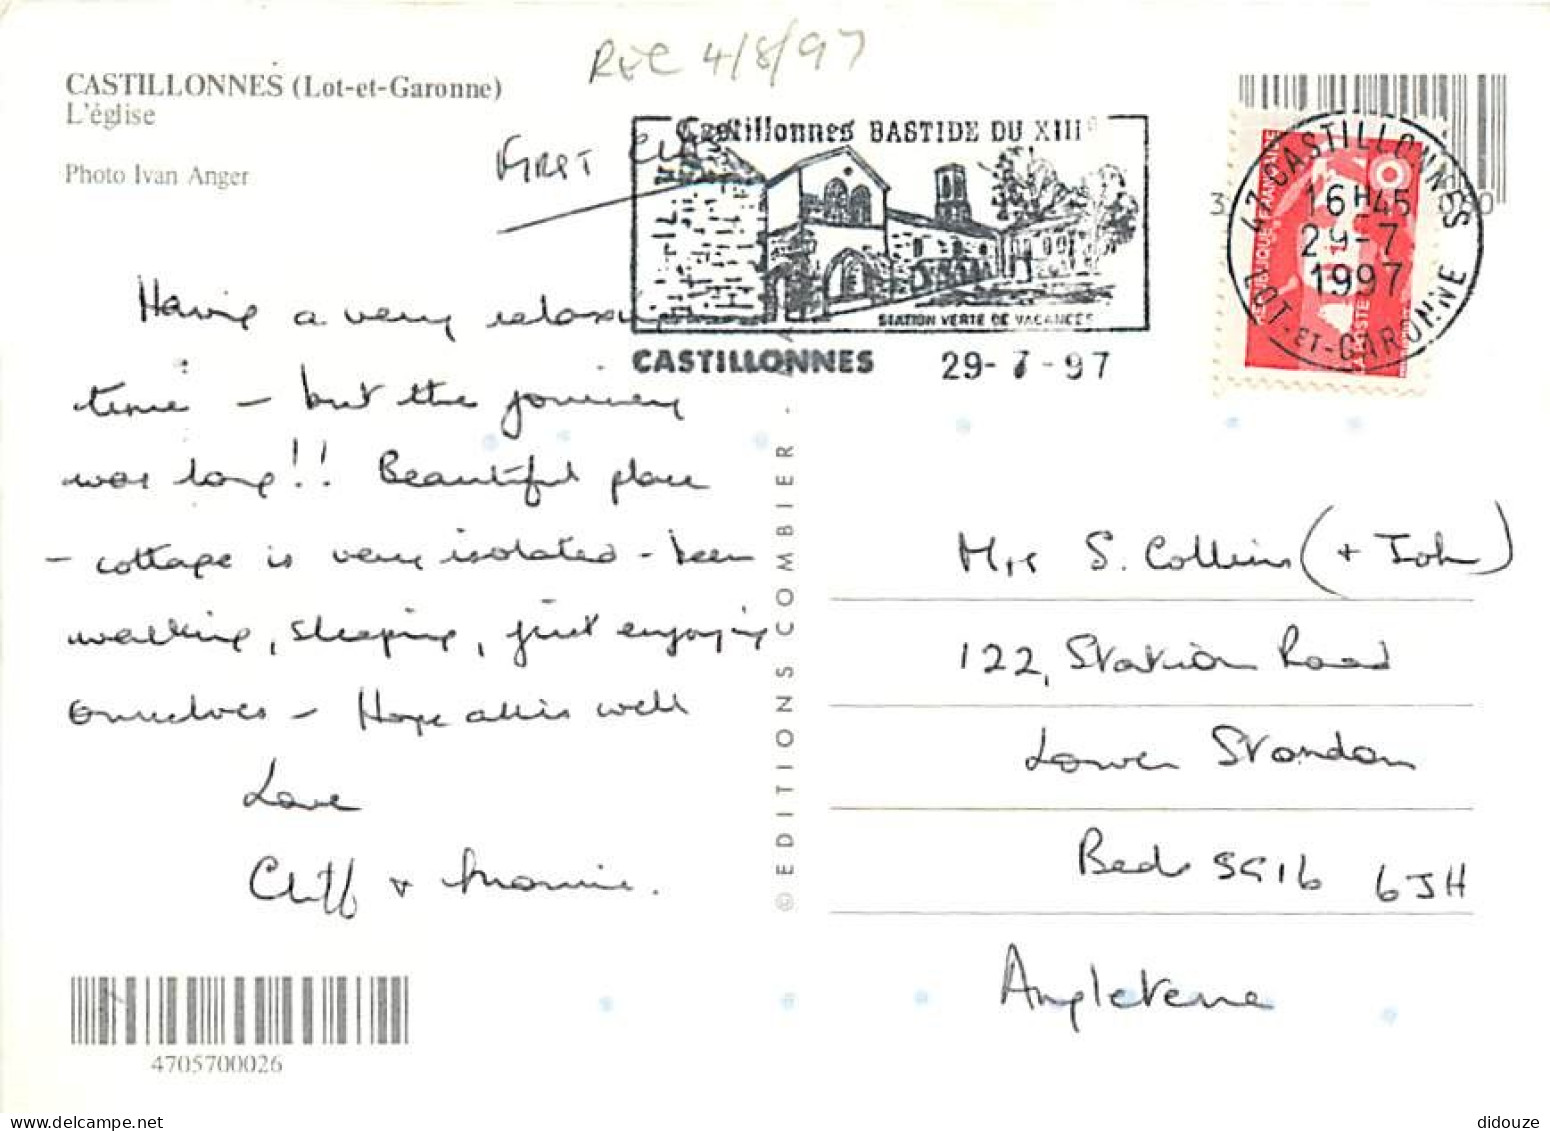 REC 4/8/97
CASTILLONNES (Lot-et-Garonne)
L'église
Photo Ivan Anger
FIRST CLASS
Castillonnes BASTIDE DU XIIIe
STATION VERTE DE VACANCES
CASTILLONNES 29-7-97
47 CASTILLONNES
16H45
29-7
1997
LOT-ET-GARONNE
Having a very relaxing
time - but the journey
was long!! Beautiful place
- cottage is very isolated - been
walking, sleeping, just enjoying
ourselves - Hope all is well
Love
Cliff +
© EDITIONS COMBIER -
Mrs S. Collins (+ John)
122, Station Road
Lower Stondon
Beds SG16 6JH
Angleterre
4705700026
didouze